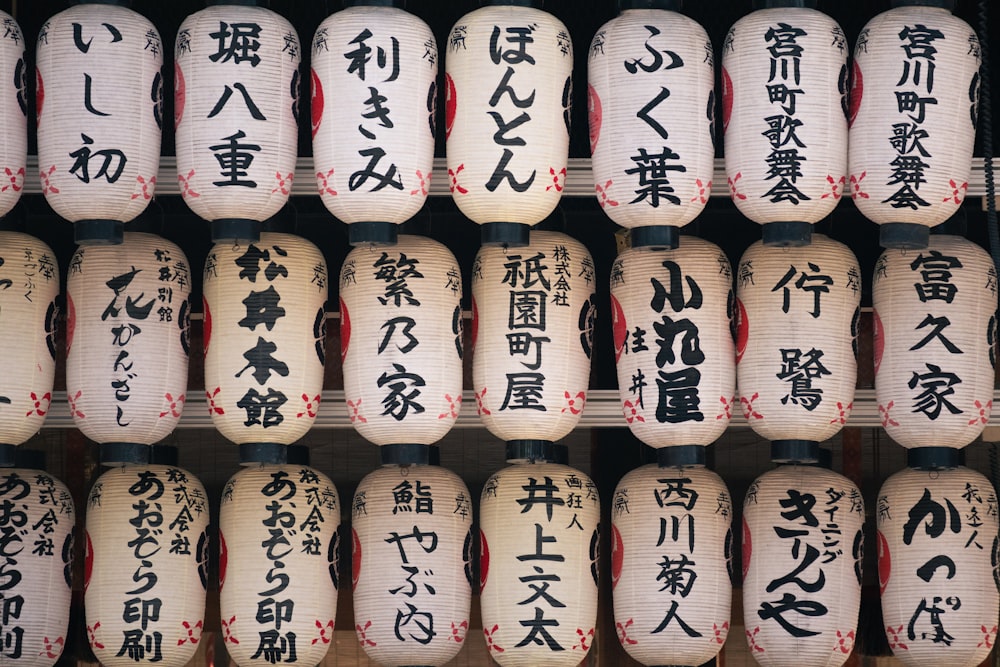 いし初
堀八重
利きみ
ぼんとん
ふく葉
宮川町歌舞会
宮川町歌舞会
花かんざし
松井別館
松井本館
繁乃家
株式会社
祇園町屋
小丸屋
住井
佇鷺
富久家
株式会社
あおぞら印刷
株式会社
あおぞら印刷
株式会社
あおぞら印刷
鮨やぶ内
狂言人
井上文太
西川菊人
ダイニング
きりんや
我楽人
かつぽ